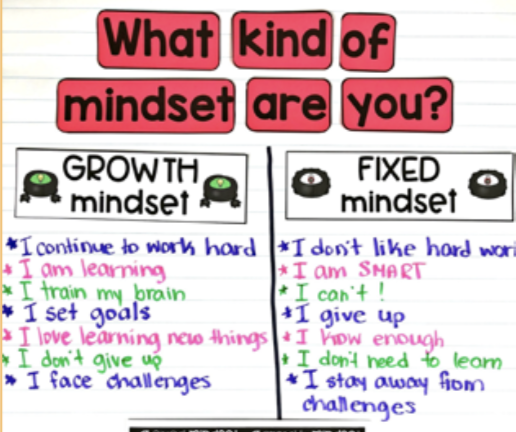 What kind of
mindset are you?
GROWTH
mindset
* I continue to work hard
* I am learning
* I train my brain
* I set goals
* I love learning new things
* I don't give up
* I face challenges
FIXED
mindset
* I don't like hard wor
* I am SMART
* I can't!
* I give up
* I know enough
* I don't need to learn
* I stay away from
challenges